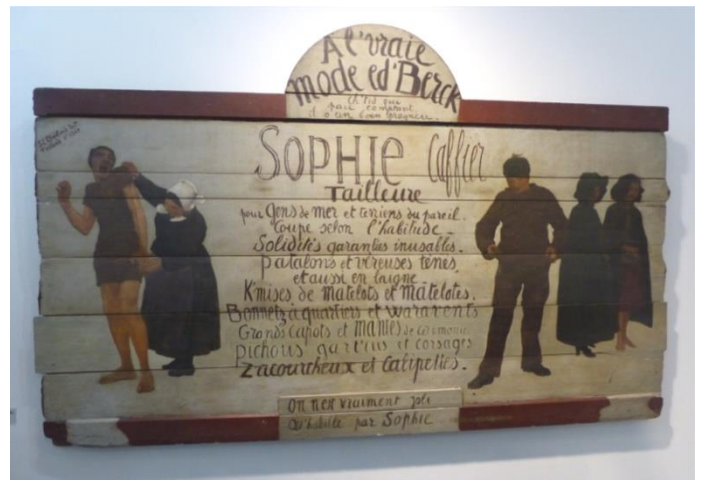 A l'vraie
Mode ed'Berck
Ch'ti qui
paie comptant
SOPHIE Caffier
Tailleure
pour Gens de mer et terriens du pareil.
Coupe selon l'habitude.
Solidités garanties inusables.
Patalons et vireuses tènes
et aussi en laigne
K'mises de Matelots et Matelotes.
Bonnetz à quartiers et Waravents
Grands Capots et Mantes de Cérimoni
Pichous gart'ius et corsages
Zacourcheux et Calipettes.
On n'est vraiment joli
Qu'habillé par Sophie